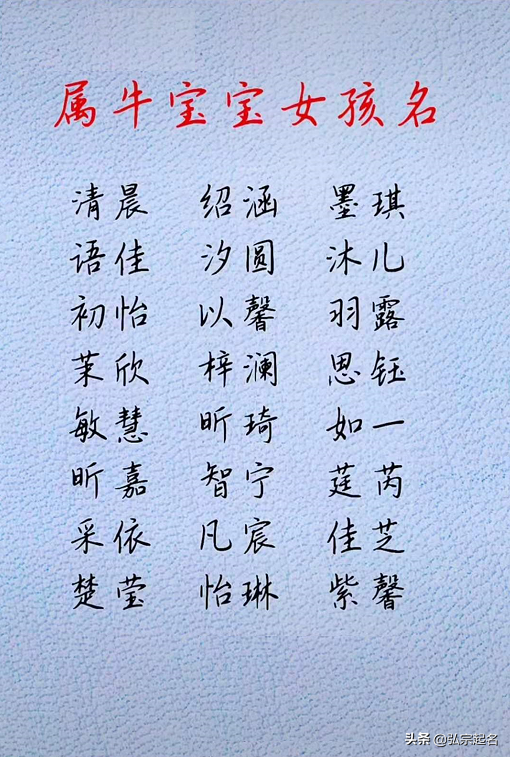 属牛宝宝女孩名
清晨 绍涵 墨琪
语佳 汐圆 沐儿
初怡 以馨 羽露
茉欣 梓澜 思钰
敏慧 昕琦 如一
昕嘉 智宁 莛芮
采依 凡宸 佳芝
楚莹 怡琳 紫馨
头条 @弘宗起名